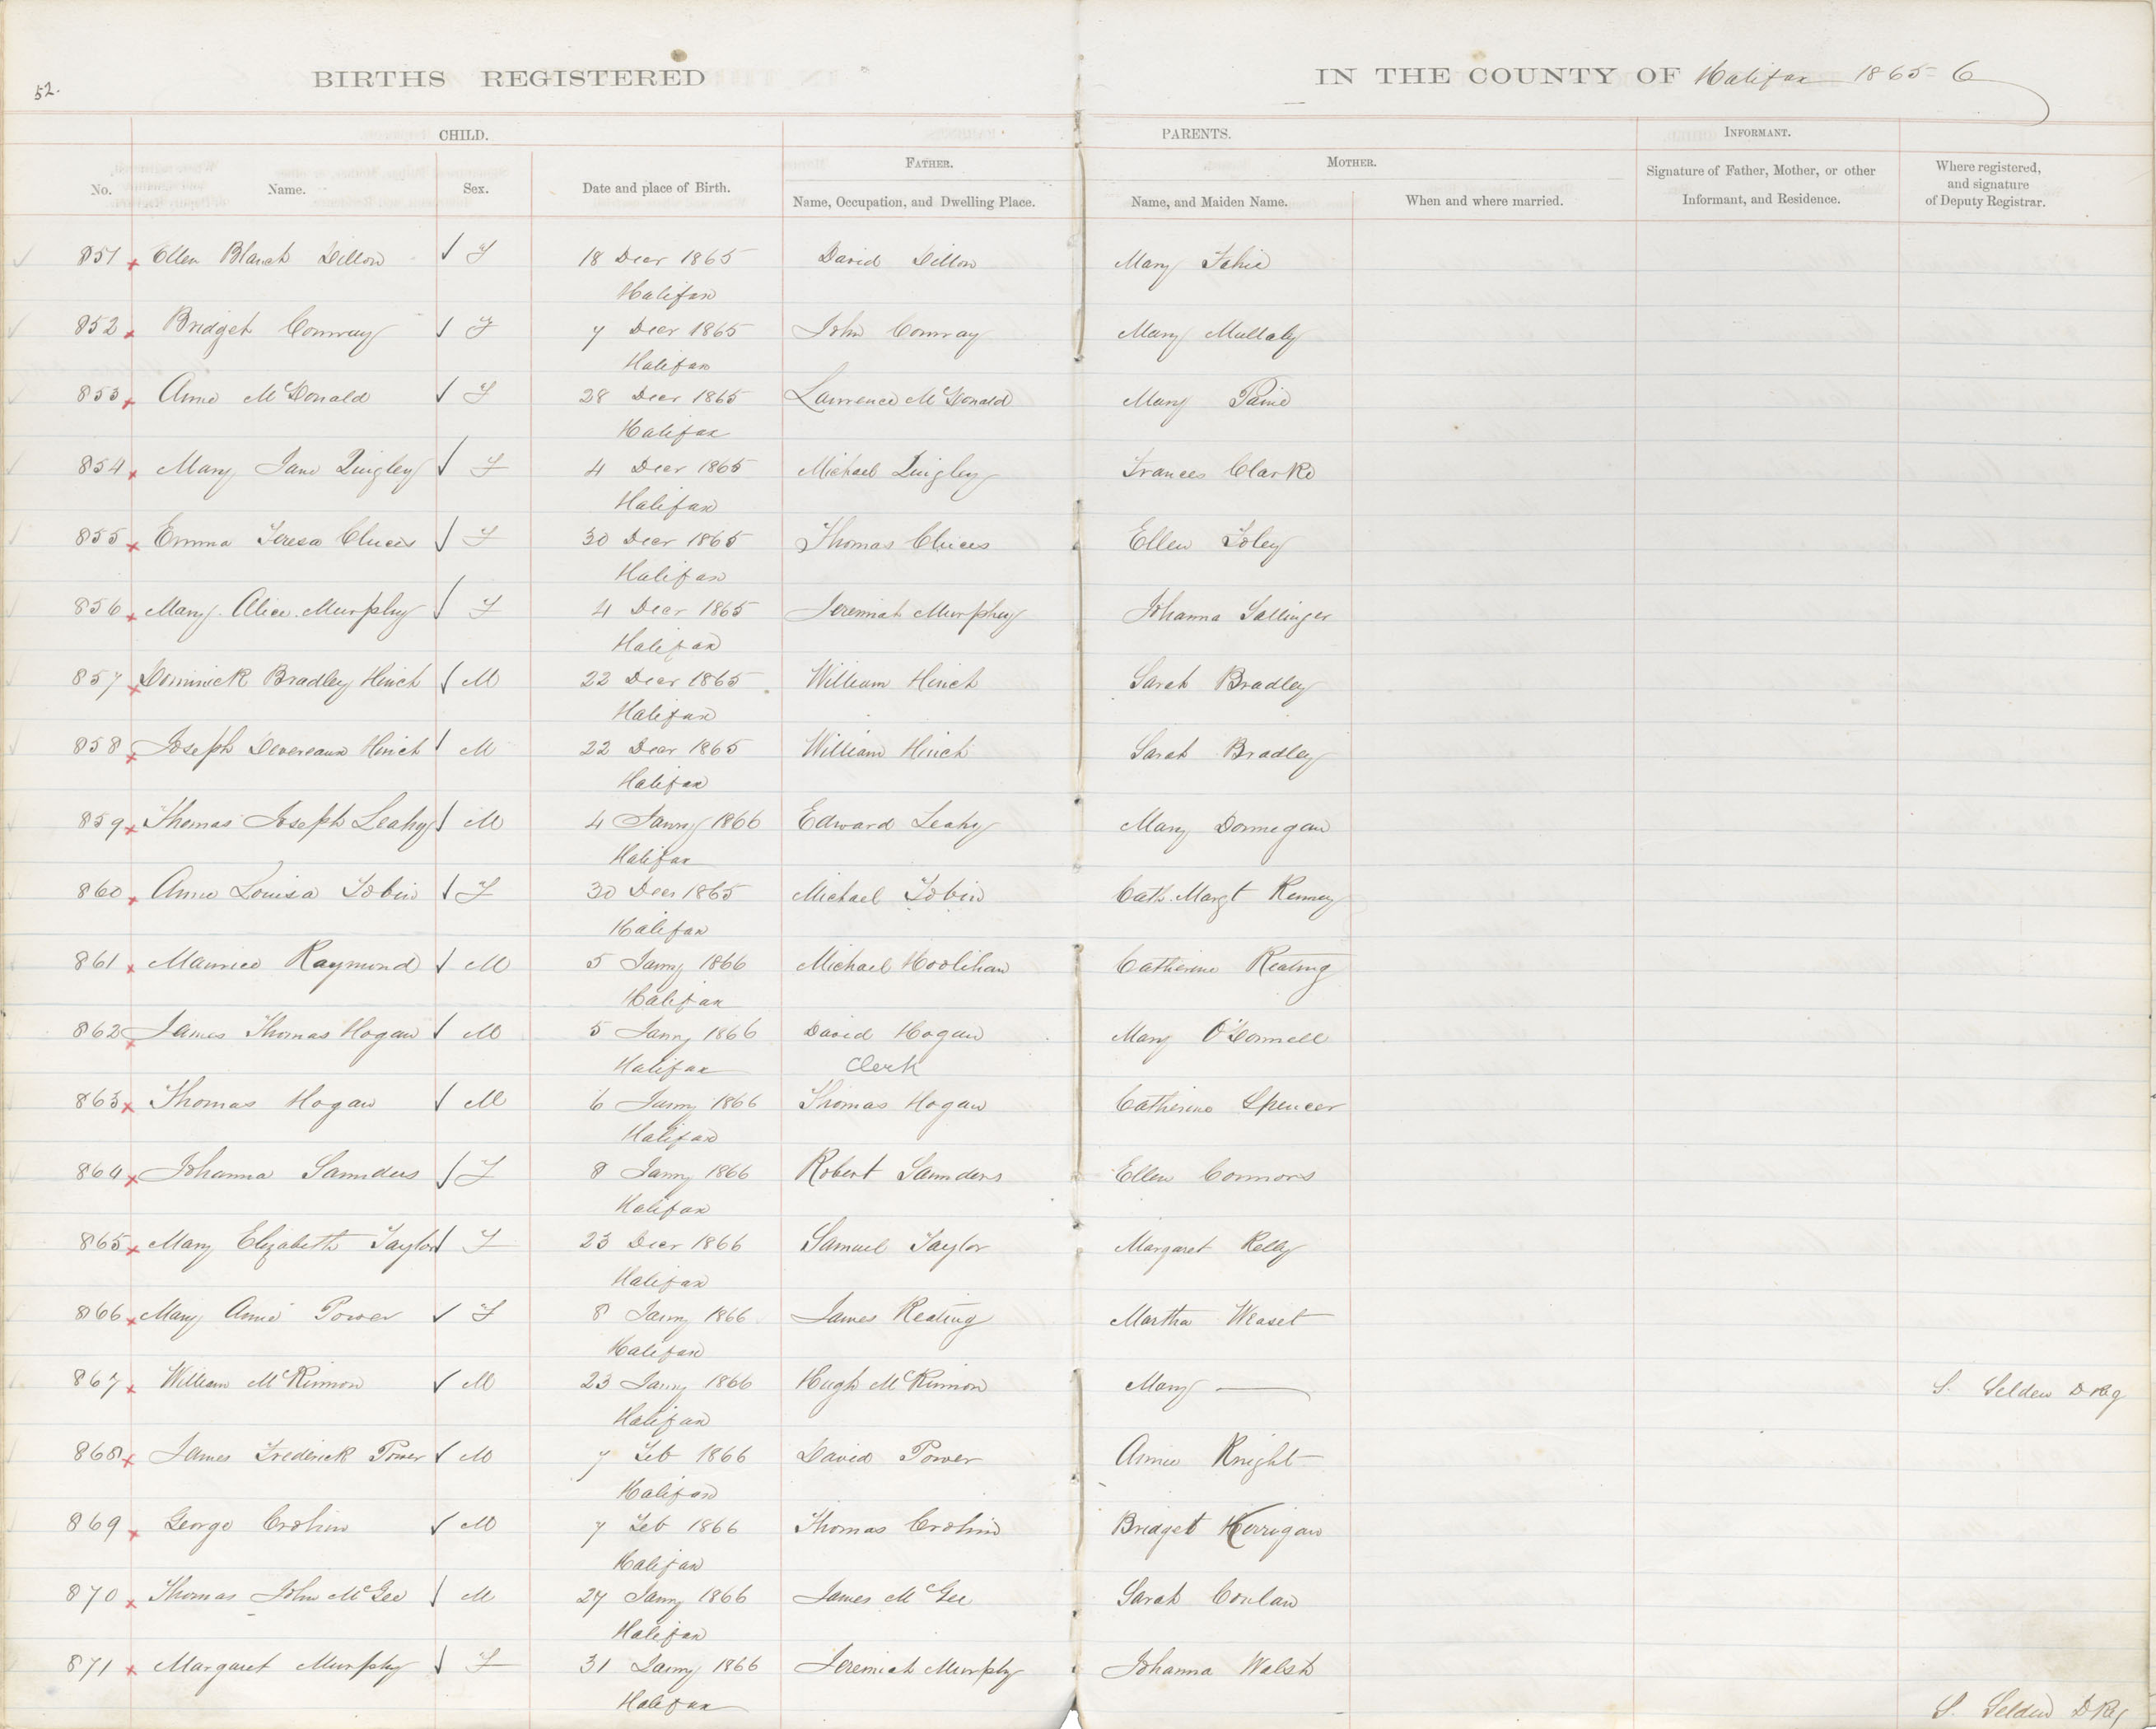 52.
BIRTHS REGISTERED IN THE COUNTY OF Halifax 1865-6
CHILD. PARENTS. INFORMANT.
FATHER. MOTHER.
No. Name. Sex. Date and place of Birth. Name, Occupation, and Dwelling Place. Name, and Maiden Name. When and where married. Signature of Father, Mother, or other Informant, and Residence. Where registered, and signature of Deputy Registrar.
851 Ellen Blanch Dillon F 18 Decr 1865 David Dillon Mary Fahie
Halifax
852 Bridget Conway F 7 Decr 1865 John Conway Mary Mullaly
Halifax
853 Anne McDonald F 28 Decr 1865 Lawrence McDonald Mary Paine
Halifax
854 Mary Jane Quigley F 4 Decr 1865 Michael Quigley Frances Clarke
Halifax
855 Emma Teresa F 30 Decr 1865 Thomas Ellen Foley
Halifax
856 Mary Alice Murphy F 4 Decr 1865 Jeremiah Murphy Johanna Sallinger
Halifax
857 Dominick Bradley Hinch M 22 Decr 1865 William Hinch Sarah Bradley
Halifax
858 Joseph Devereaux Hinch M 22 Decr 1865 William Hinch Sarah Bradley
Halifax
859 Thomas Joseph Leahy M 4 Janry 1866 Edward Leahy Mary Donnegan
Halifax
860 Anne Louisa Tobin F 30 Decr 1865 Michael Tobin Cath. Margt Kenney
Halifax
861 Maurice Raymond M 5 Janry 1866 Michael Hoolihan Catherine Keating
Halifax
862 James Thomas Hogan M 5 Janry 1866 David Hogan Mary O'Donnell
Halifax Clerk
863 Thomas Hogan M 6 Janry 1866 Thomas Hogan Catherine Spencer
Halifax
864 Johanna Saunders F 8 Janry 1866 Robert Saunders Ellen Connors
Halifax
865 Mary Elizabeth Taylor F 23 Decr 1866 Samuel Taylor Margaret Kelly
Halifax
866 Mary Anne Power F 8 Janry 1866 James Keating Martha Weaset
Halifax
867 William McKinnon M 23 Janry 1866 Hugh McKinnon Mary — S. Selden D Reg
Halifax
868 James Frederick Power M 7 Feb 1866 David Power Annie Knight
Halifax
869 George Crohin M 7 Feb 1866 Thomas Crohin Bridget Kerrigan
Halifax
870 Thomas John McGee M 27 Janry 1866 James McGee Sarah Conlan
Halifax
871 Margaret Murphy F 31 Janry 1866 Jeremiah Murphy Johanna Walsh
Halifax S. Selden D Reg